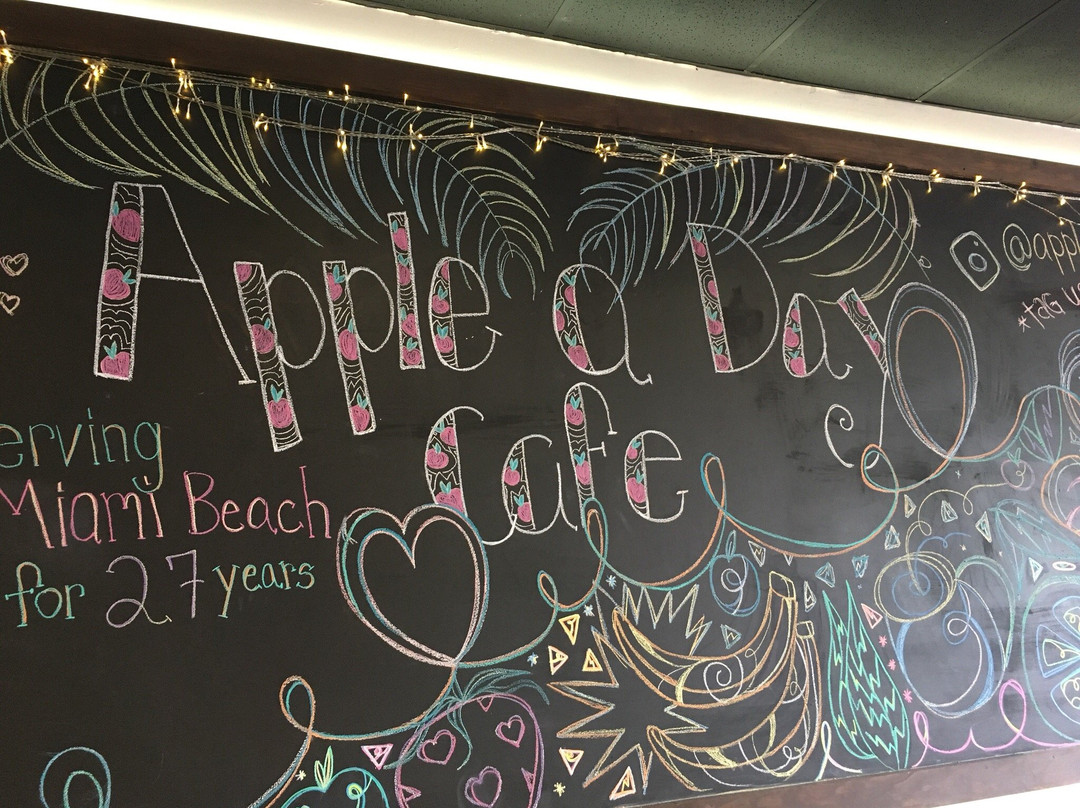 Apple a Day
Cafe
erving
Miami Beach
for 27 years
@appl
*tag u